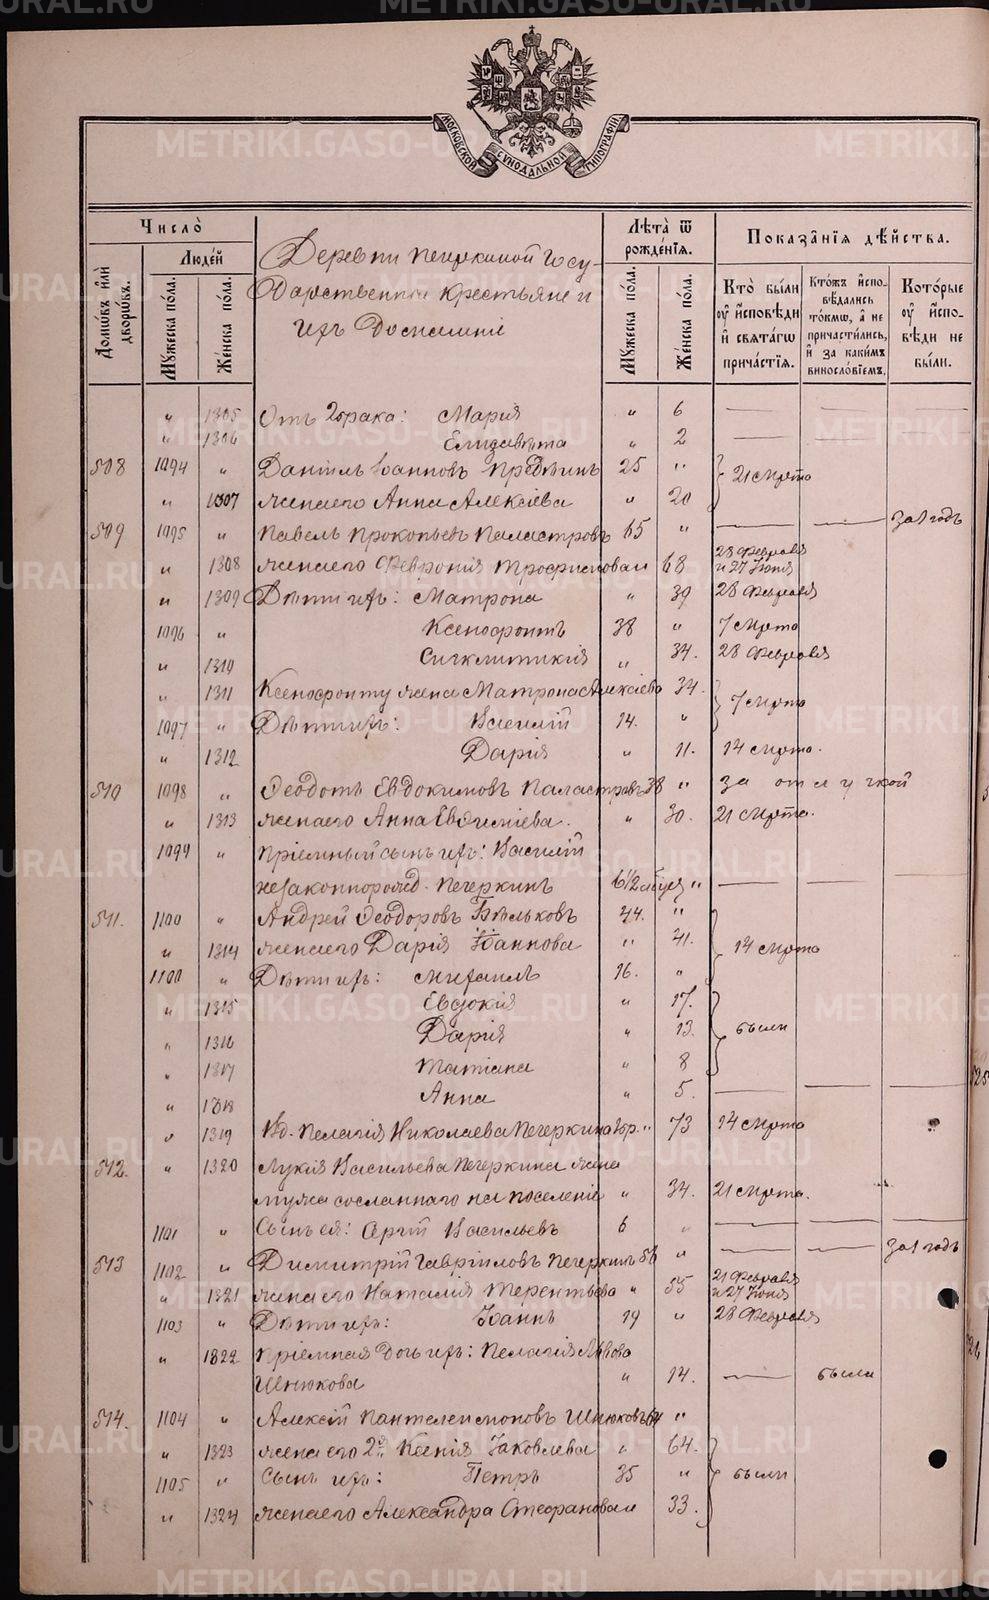 METRIKI.GASO-URAL.RU
МОСКОВСКОЙ СѴНОДАЛЬНОЙ ТИПОГРАФІИ
Число̀
Людéй
Домѡвъ и҆лѝ дворѡвъ.
Мꙋжеска пóла.
Жéнска пóла.
Деревни Печеркиной Госу-
дарственныи крестьяне и
ихъ Домашніи
Лѣта̀ ѿ рождéнїѧ.
Мꙋжеска пóла.
Жéнска пóла.
Показа̂нїѧ дѣ́йства.
Кто̀ бы́ли оу҆ и҆сповѣди и҆ свѧта́гѡ причáстїѧ.
Кто́жъ и҆спо­вѣдались то́кмѡ, а҆ не причасти́лись, и҆ за каки́мъ винослóвїемъ.
Кото́рые оу҆ и҆спо­вѣди не бы́ли.
" 1305 Отъ 2 брака: Мария " 6 — — —
" 1306 Елизавета " 2 — — —
508 1094 " Даніилъ Іоанновъ 25 "
21 Марта
" 1307 жена его Анна Алексіева " 20
509 1095 " Павелъ Прокопьевъ Паластровъ 65 " — — за 1 годъ
" 1308 жена его Феврония 68 28 Февраля и 27 Іюня
" 1309 Дѣти ихъ: Матрона " 39 28 Февраля
1096 " Ксенофонтъ 38 " 7 Марта
" 1310 Сигклитикия " 34. 28 Февраля
" 1311 Ксенофонту жена Матрона Алексіева 34.
7 Марта
1097 " Дѣти ихъ: Василій 14. "
" 1312 Дарія " 11. 14 Марта.
510 1098 " Ѳеодотъ Евдокимовъ Паластровъ 38 " за отлучкой
" 1313 жена его Анна Евѳиміева. " 30. 21 Марта.
1099 " Пріемный сынъ ихъ: Василій
незаконнорожд. Печеркинъ 6 1/2 " — — —
511. 1100 " Андрей Ѳеодоровъ Бѣльковъ 44. "
" 1314 жена его Дарія Іоаннова " 41. 14 Марта
1100 " Дѣти ихъ: Михаилъ 16. "
" 1315 Евдокія " 17.
" 1316 Дарія " 13. были
" 1317 Татіана " 8
" 1318 Анна " 5. — — —
" 1319 Вд. Пелагія Николаева Печеркина " 73 14 Марта
512. " 1320 Лукія Васильева Печеркина жена
мужа сосланнаго на поселеніе " 34. 21 Марта.
1101 " Сынъ ея: Сергій Васильевъ 6 " — — —
513 1102 " Димитрій Гавріиловъ Печеркинъ 56 " — — за 1 годъ
" 1321 жена его Наталія Терентьева " 55 21 Февраля и 27 Іюня
1103 " Дѣти ихъ: Іоаннъ 19 " 28 Февраля
" 1322 Пріемная дочь ихъ: Пелагія Львова
Шнюкова " 14. — были
514. 1104 " Алексій Пантелеимоновъ Шнюковъ 64 "
" 1323 жена его 2я Ксенія Іаковлева " 64.
1105 " Сынъ ихъ: Петръ 35 " были
" 1324 жена его Александра Стефанова " 33.